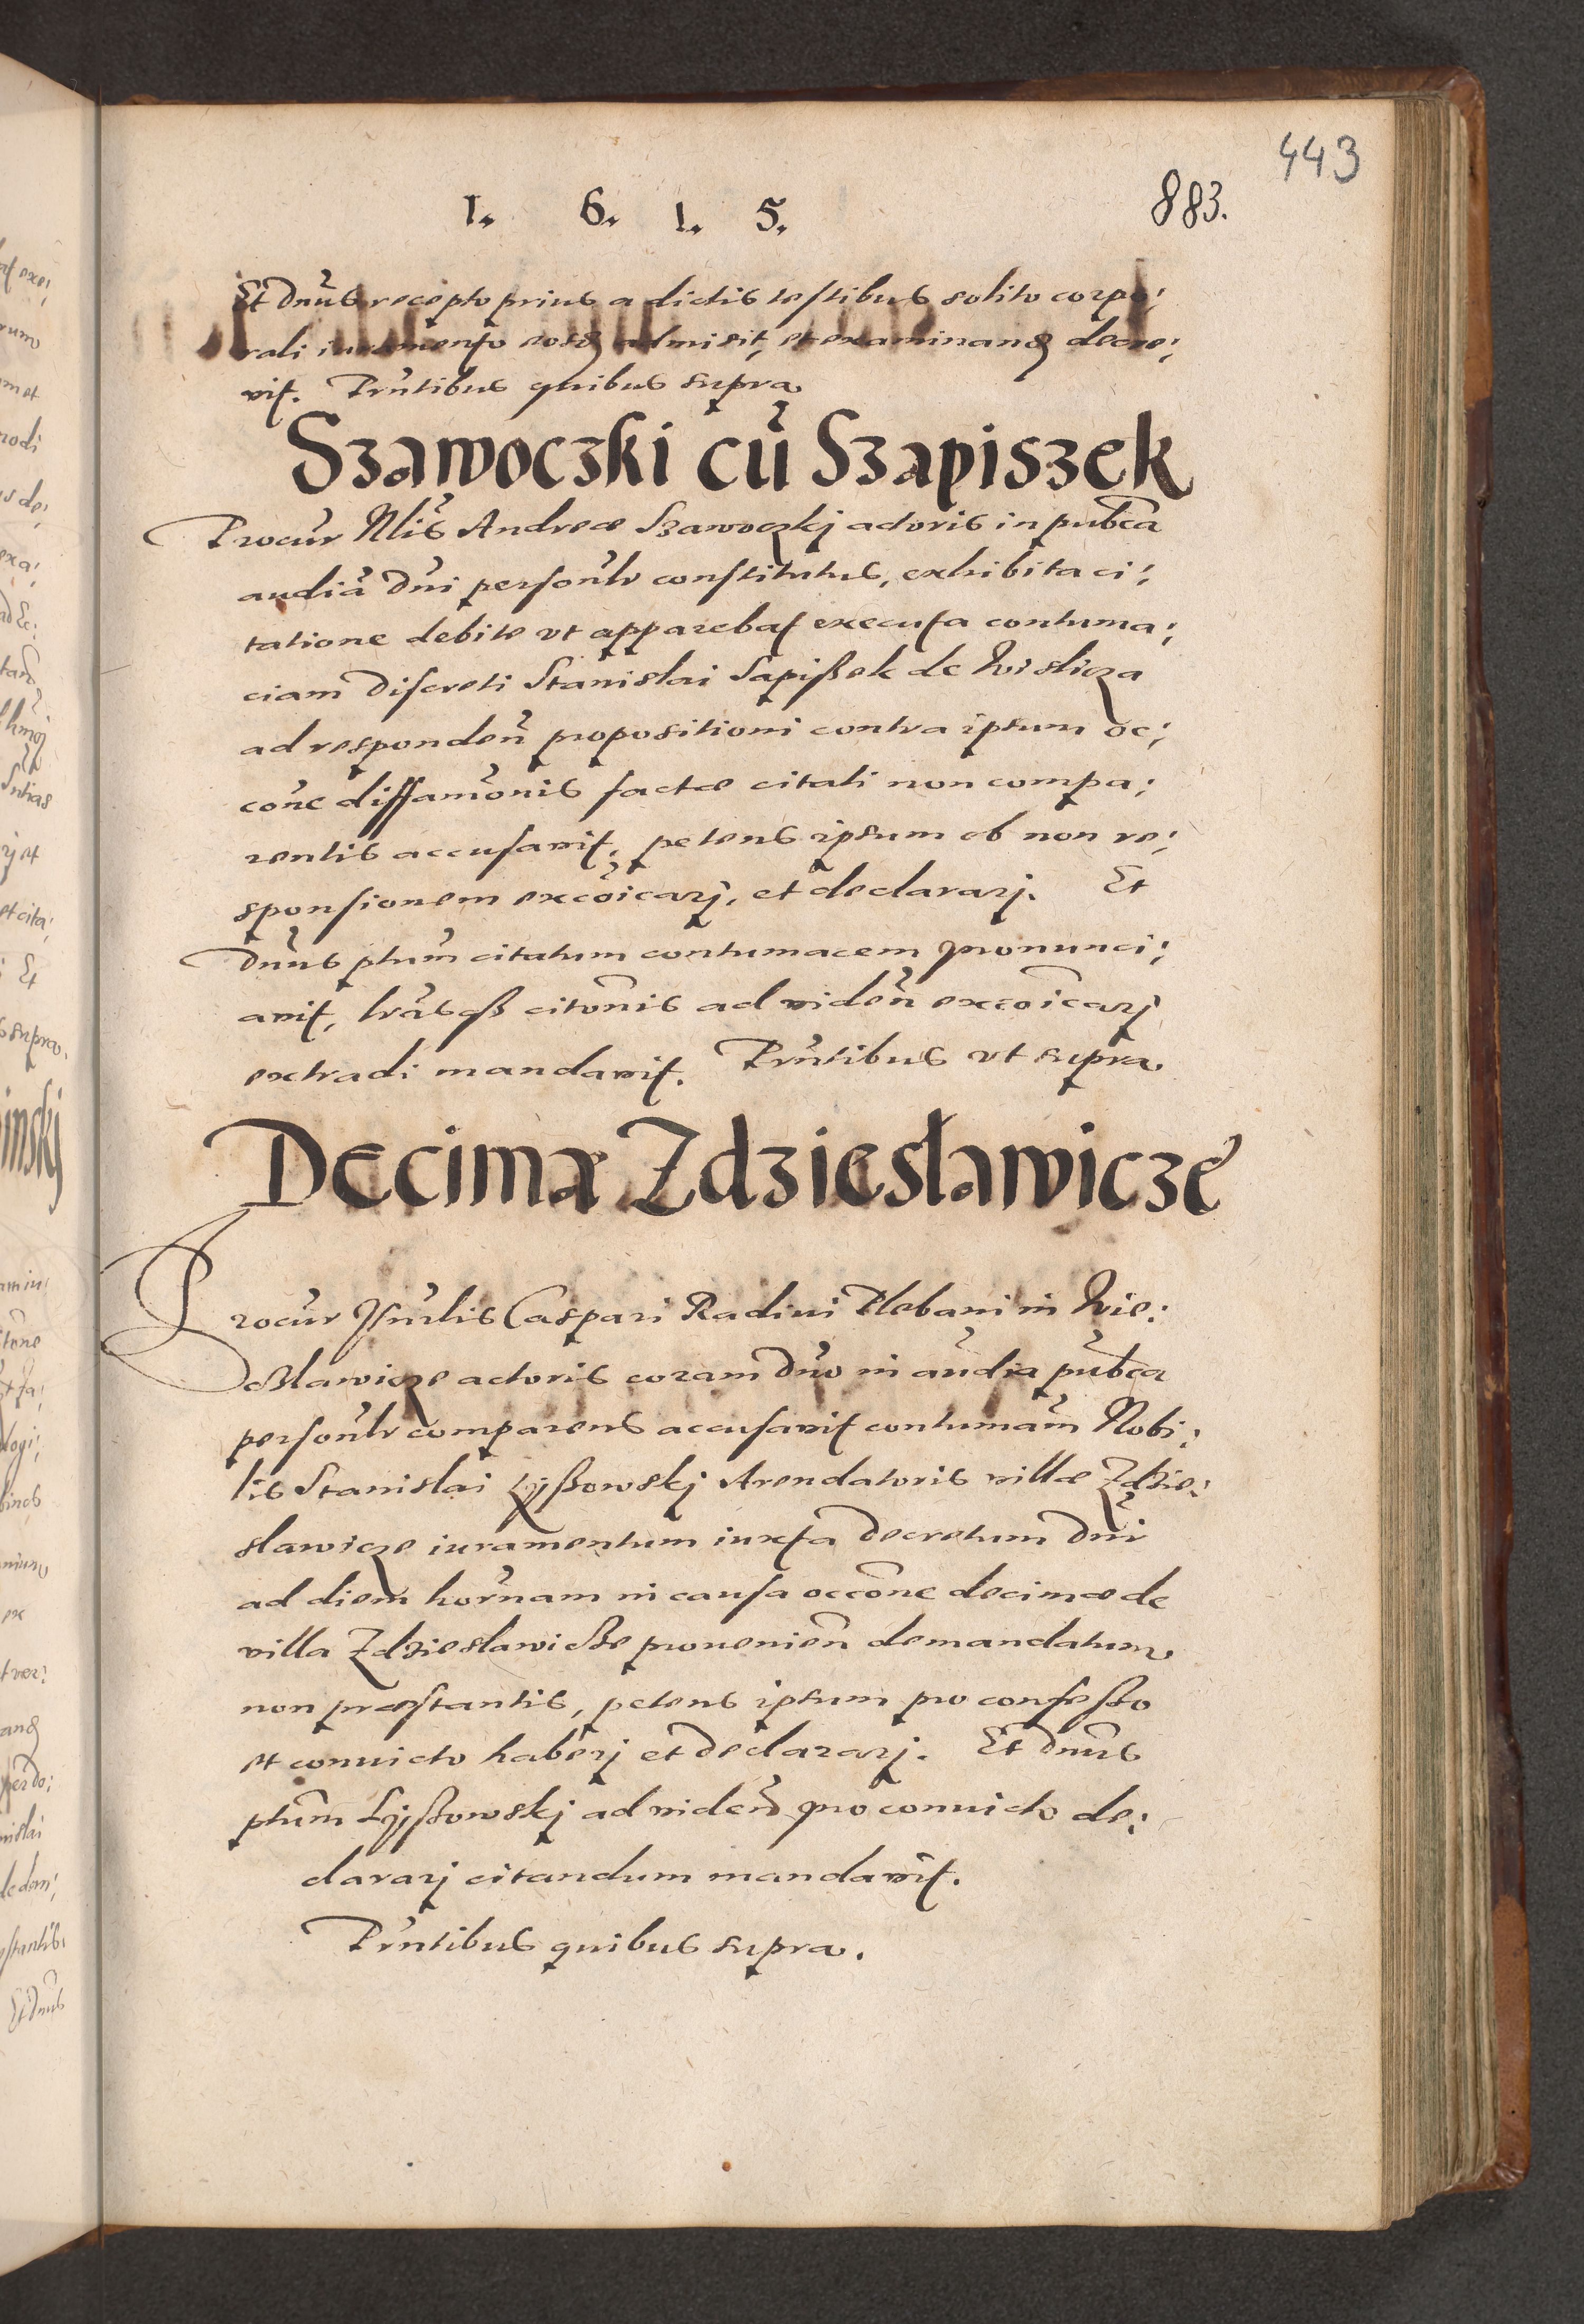 443
1. 6. 1. 5.
883.
Et Dnũs recepto prius a dictis testibus solito corpo:
rali iuramento eosd admisit, et examinand decre:
vit. Prñtibus quibus supra
Szawoczki cũ Szapiszek
Procur Nlis Andreæ Szawoczkj actoris in pubca
audiã Dñi personlr constitutus, exhibita ci:
tatione debite vt apparebat executa contuma:
ciam Discreti Stanislai Sapißek de Wislicza
ad responden̄ propositioni contra ipsum oc:
cone diffamõnis factæ citati non compa:
rentis accusavit, petens ipsum ob non re:
sponsionem excõicarj, et declararj. Et
Dnũs ptum citatum contumacem pronunci:
avit, lrãsqß citõnis ad viden̄ excoicarj
extradi mandavit. Prñtibus vt supra.
Decimæ Zdziesławicze
Procur Caspari Radini Plebani in Wie:
osławicze actoris coram Dno in audia pubca
personlr comparens accusavit contumam̃ Nobi:
lis Stanislai Lyßowskj Arendatoris villæ Zdzie:
slawicze iuramentum iuxta decretum Dñi
ad diem hornam in causa occõne decimæ de
villa Zdzieslawicße provenien̄ demandatum
non præstantis, petens ipsum pro confesso
et convicto haberj et declararj. Et Dnũs
ptum Lyßowskj ad viden̄ pro convicto de:
clararj citandum mandavit.
Prñtibus quibus supra.